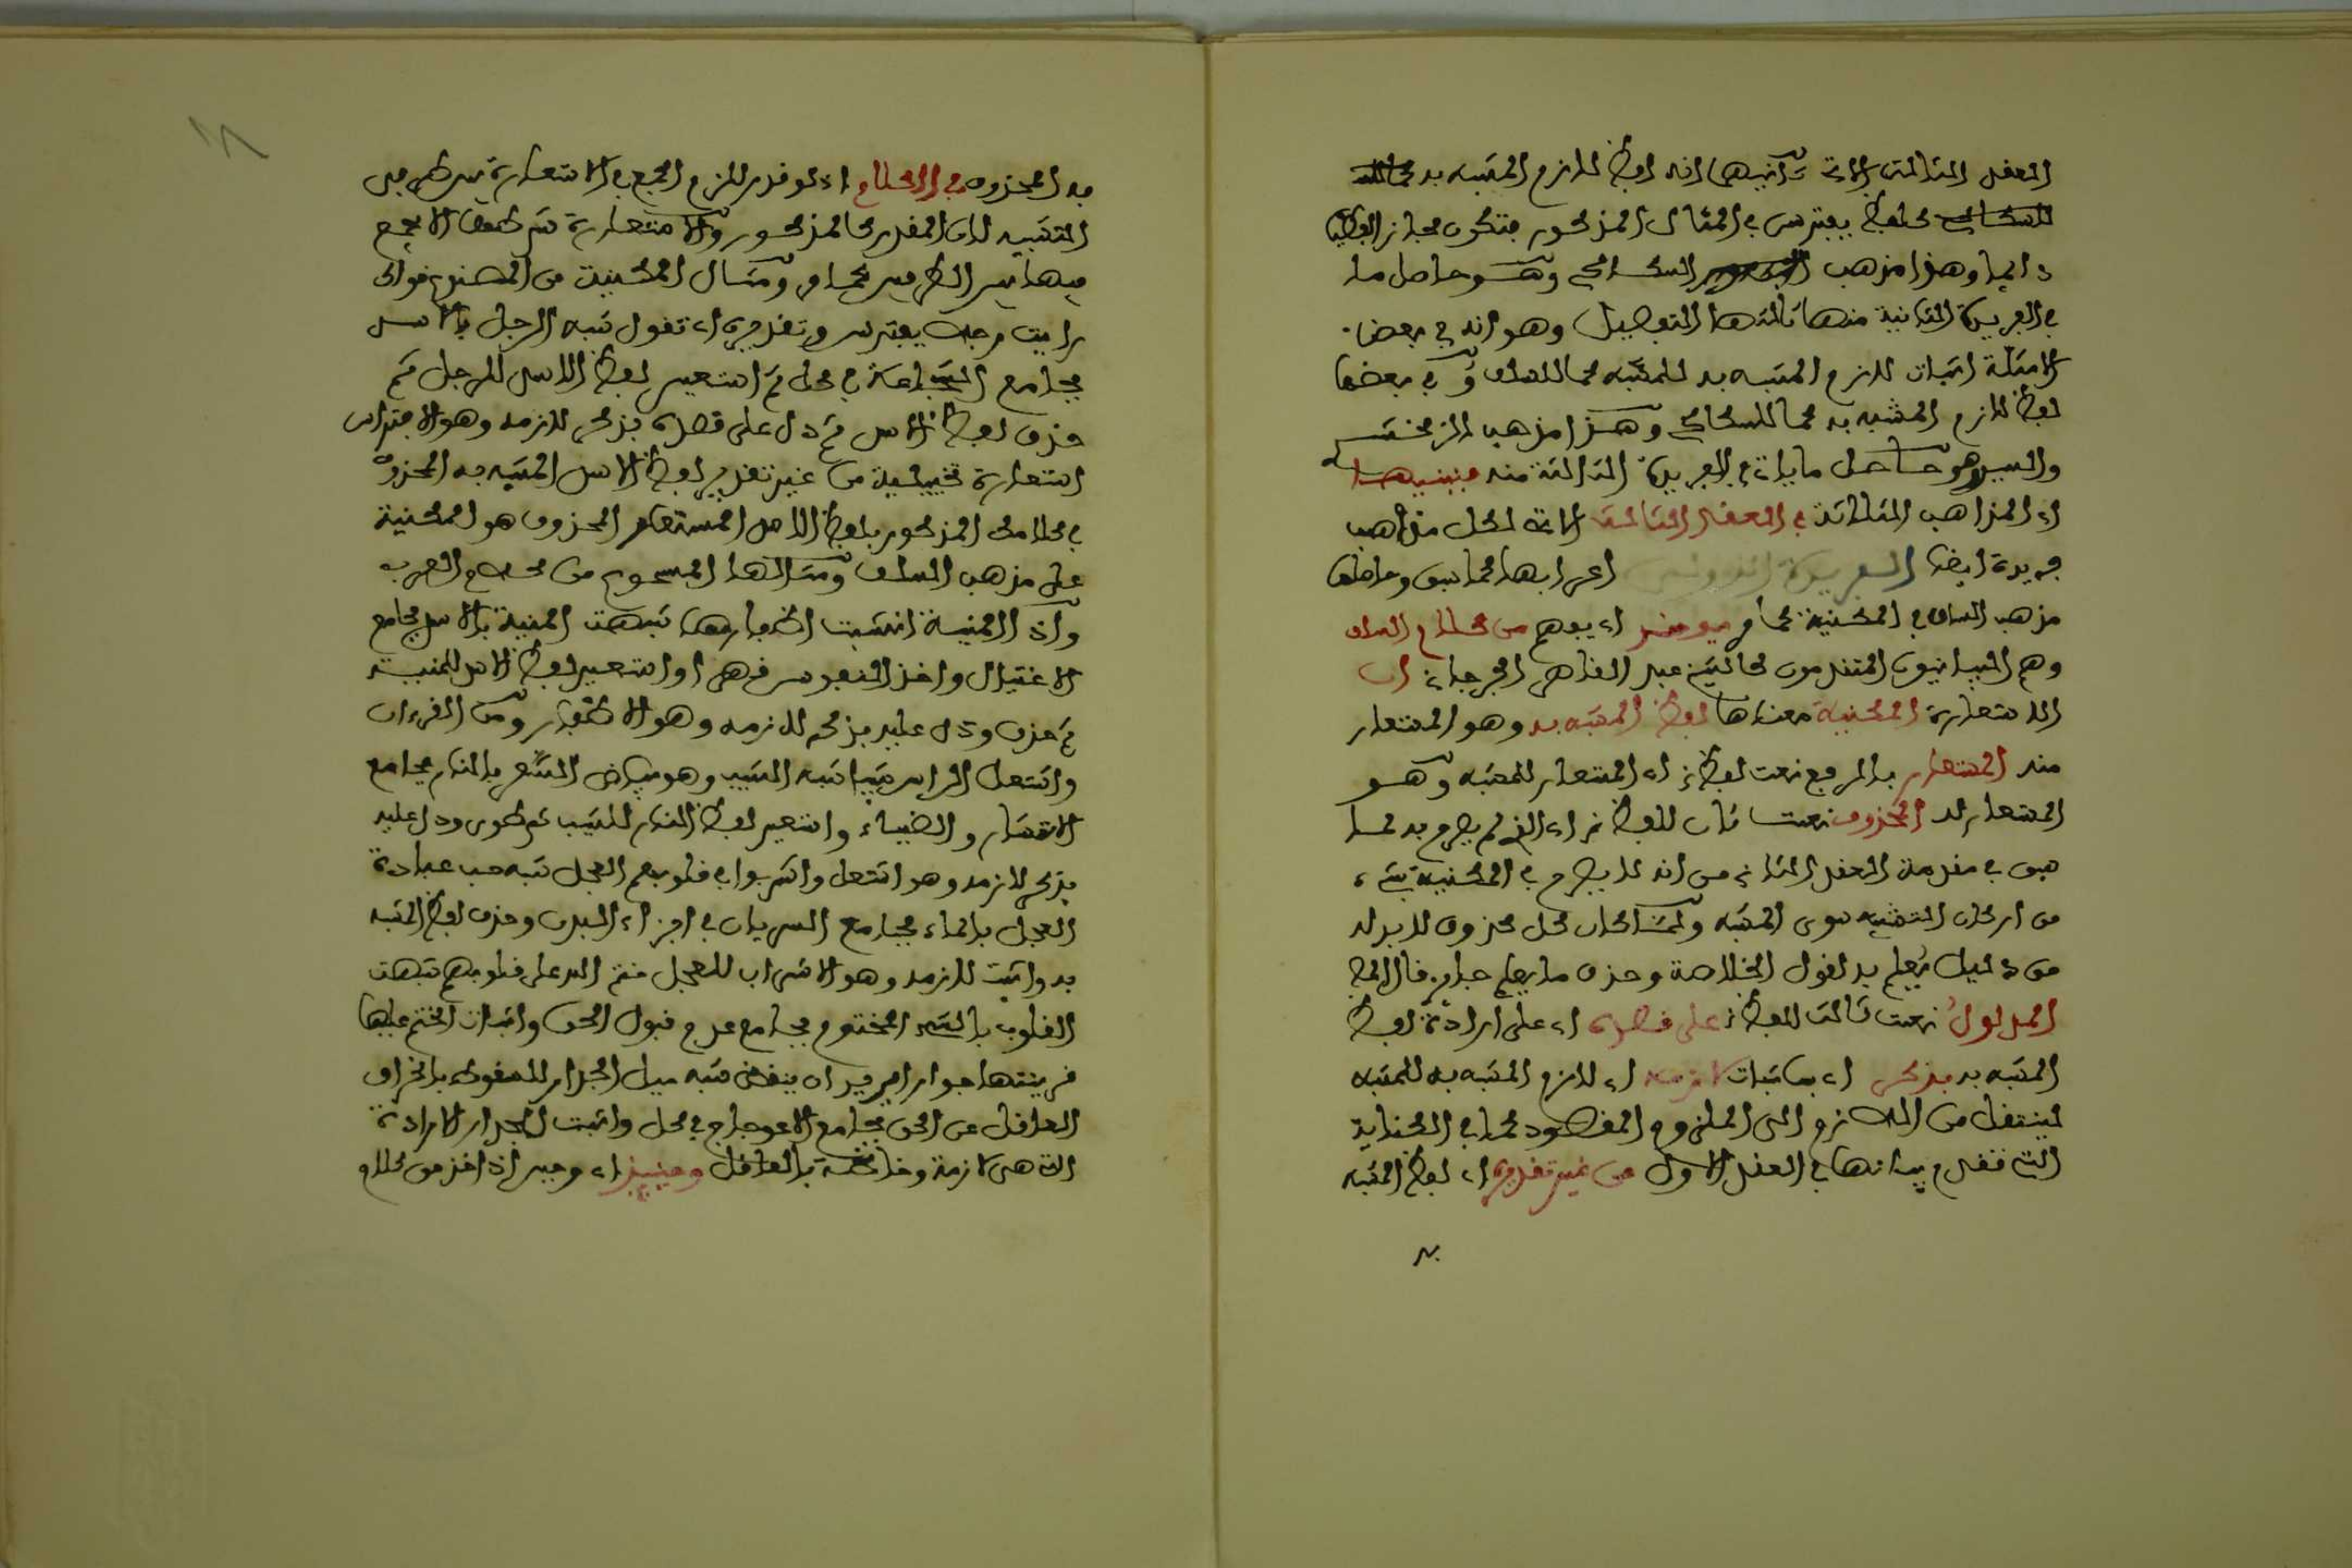 العقد الثالث الاتي ثانيها انه لفظ لازم المشبه به
كلفظ يفترس في المثال المذكور فتكون مجاز الفظيا
دايما وهذا مذهب السكاكي وهو حاصل ما
في الفريدة الثانية منها ثالثها التفصيل وهو انه في بعض
الامثلة اثبات لازم المشبه به للمشبه كما للسلف وفي بعضها
لفظ لازم المشبه به كما للسكاكي وهذا مذهب الزمخشري
والسيد وهو حاصل ما ياتي في الفريدة الثالثة منه فبنيها
اي المذاهب الثلاثة في العقد الثالث الاتي لكل مذهب
فريدة ايضا الفريدة الاولى اعرابها كما سبق وحاصلها
مذهب السلف في المكنية كما يومئ اي يوهم من كلام السلف
وهم البيانيون المتقدمون كالشيخ عبد القاهر الجرجاني ان
الاستعارة المكنية معناها لفظ المشبه به وهو المستعار
منه المستعار بالرفع نعت لفظ اي المستعار للمشبه وهو
المستعار له المحذوف نعت ثان للفظ اي الذي لم يصرح به لما
سبق في مقدمة العقد الثاني من انه لا يصرح في المكنية بشيء
من اركان التشبيه سوى المشبه ولما كان كل محذوف لا بد له
من دليل يعلم به لقول الخلاصة وحذف ما يعلم جايز قال المص
المدلول نعت ثالث للفظ على قصده اي على ارادة لفظ
المشبه به بذكر اي باثبات لازمه اي لازم المشبه به للمشبه
لينتقل من اللازم الى الملزوم المقصود كما في الكناية
التي تقدم بيانها في العقد الاول من غير تقدير اي لفظ المشبه
به
به المحذوف في الكلام اي لو قدر للزم الجمع في الاستعارة بين طرفي
التشبيه لان المقدر كالمذكور والاستعارة شرطها الا يجمع
فيها بين الطرفين كما مر ومثال المكنية من المصنوع قولك
رايت رجلا يفترس وتقديره ان تقول شبه الرجل بالاسد
بجامع الشجاعة في كل ثم استعير لفظ الاسد للرجل ثم
حذف لفظ الاسد ثم دل على قصده بذكر لازمه وهو الافتراس
استعارة تخييلية من غير تقدير لفظ الاسد المشبه به المحذوف
في كلامك المذكور بلفظ الاسد المستعار المحذوف هو المكنية
على مذهب السلف ومثالها المسموع من كلام العرب
واذا المنية انشبت اظفارها شبهت المنية بالاسد بجامع
الاغتيال واخذ النفوس قهرا واستعير لفظ الاسد للمنية
ثم حذف ودل عليه بذكر لازمه وهو الاظفار ومن القرءان
واشتعل الراس شيبا شبه الشيب وهو بياض الشعر بالنار بجامع
الانتشار والضياء واستعير لفظ النار للشيب ثم طوى ودل عليه
بذكر لازمه وهو اشتعل واشربوا في قلوبهم العجل شبه حب عبادة
العجل بالماء بجامع السريان في اجزاء البدن وحذف لفظ المشبه
به واثبت لازمه وهو الاشراب للعجل ختم الله على قلوبهم شبهت
القلوب بالشيء المختوم بجامع عدم قبول الحق واثبات الختم عليها
قرينتها جدارا يريد ان ينقض شبه ميل الجدار للسقوط بانحراف
العاقل عن الحق بجامع الاعوجاج في كل واثبت للجدار الارادة
التي هي لازمة وخاصة بالعاقل وحينيذ اي وحين اذ اخذ من كلام
١٨